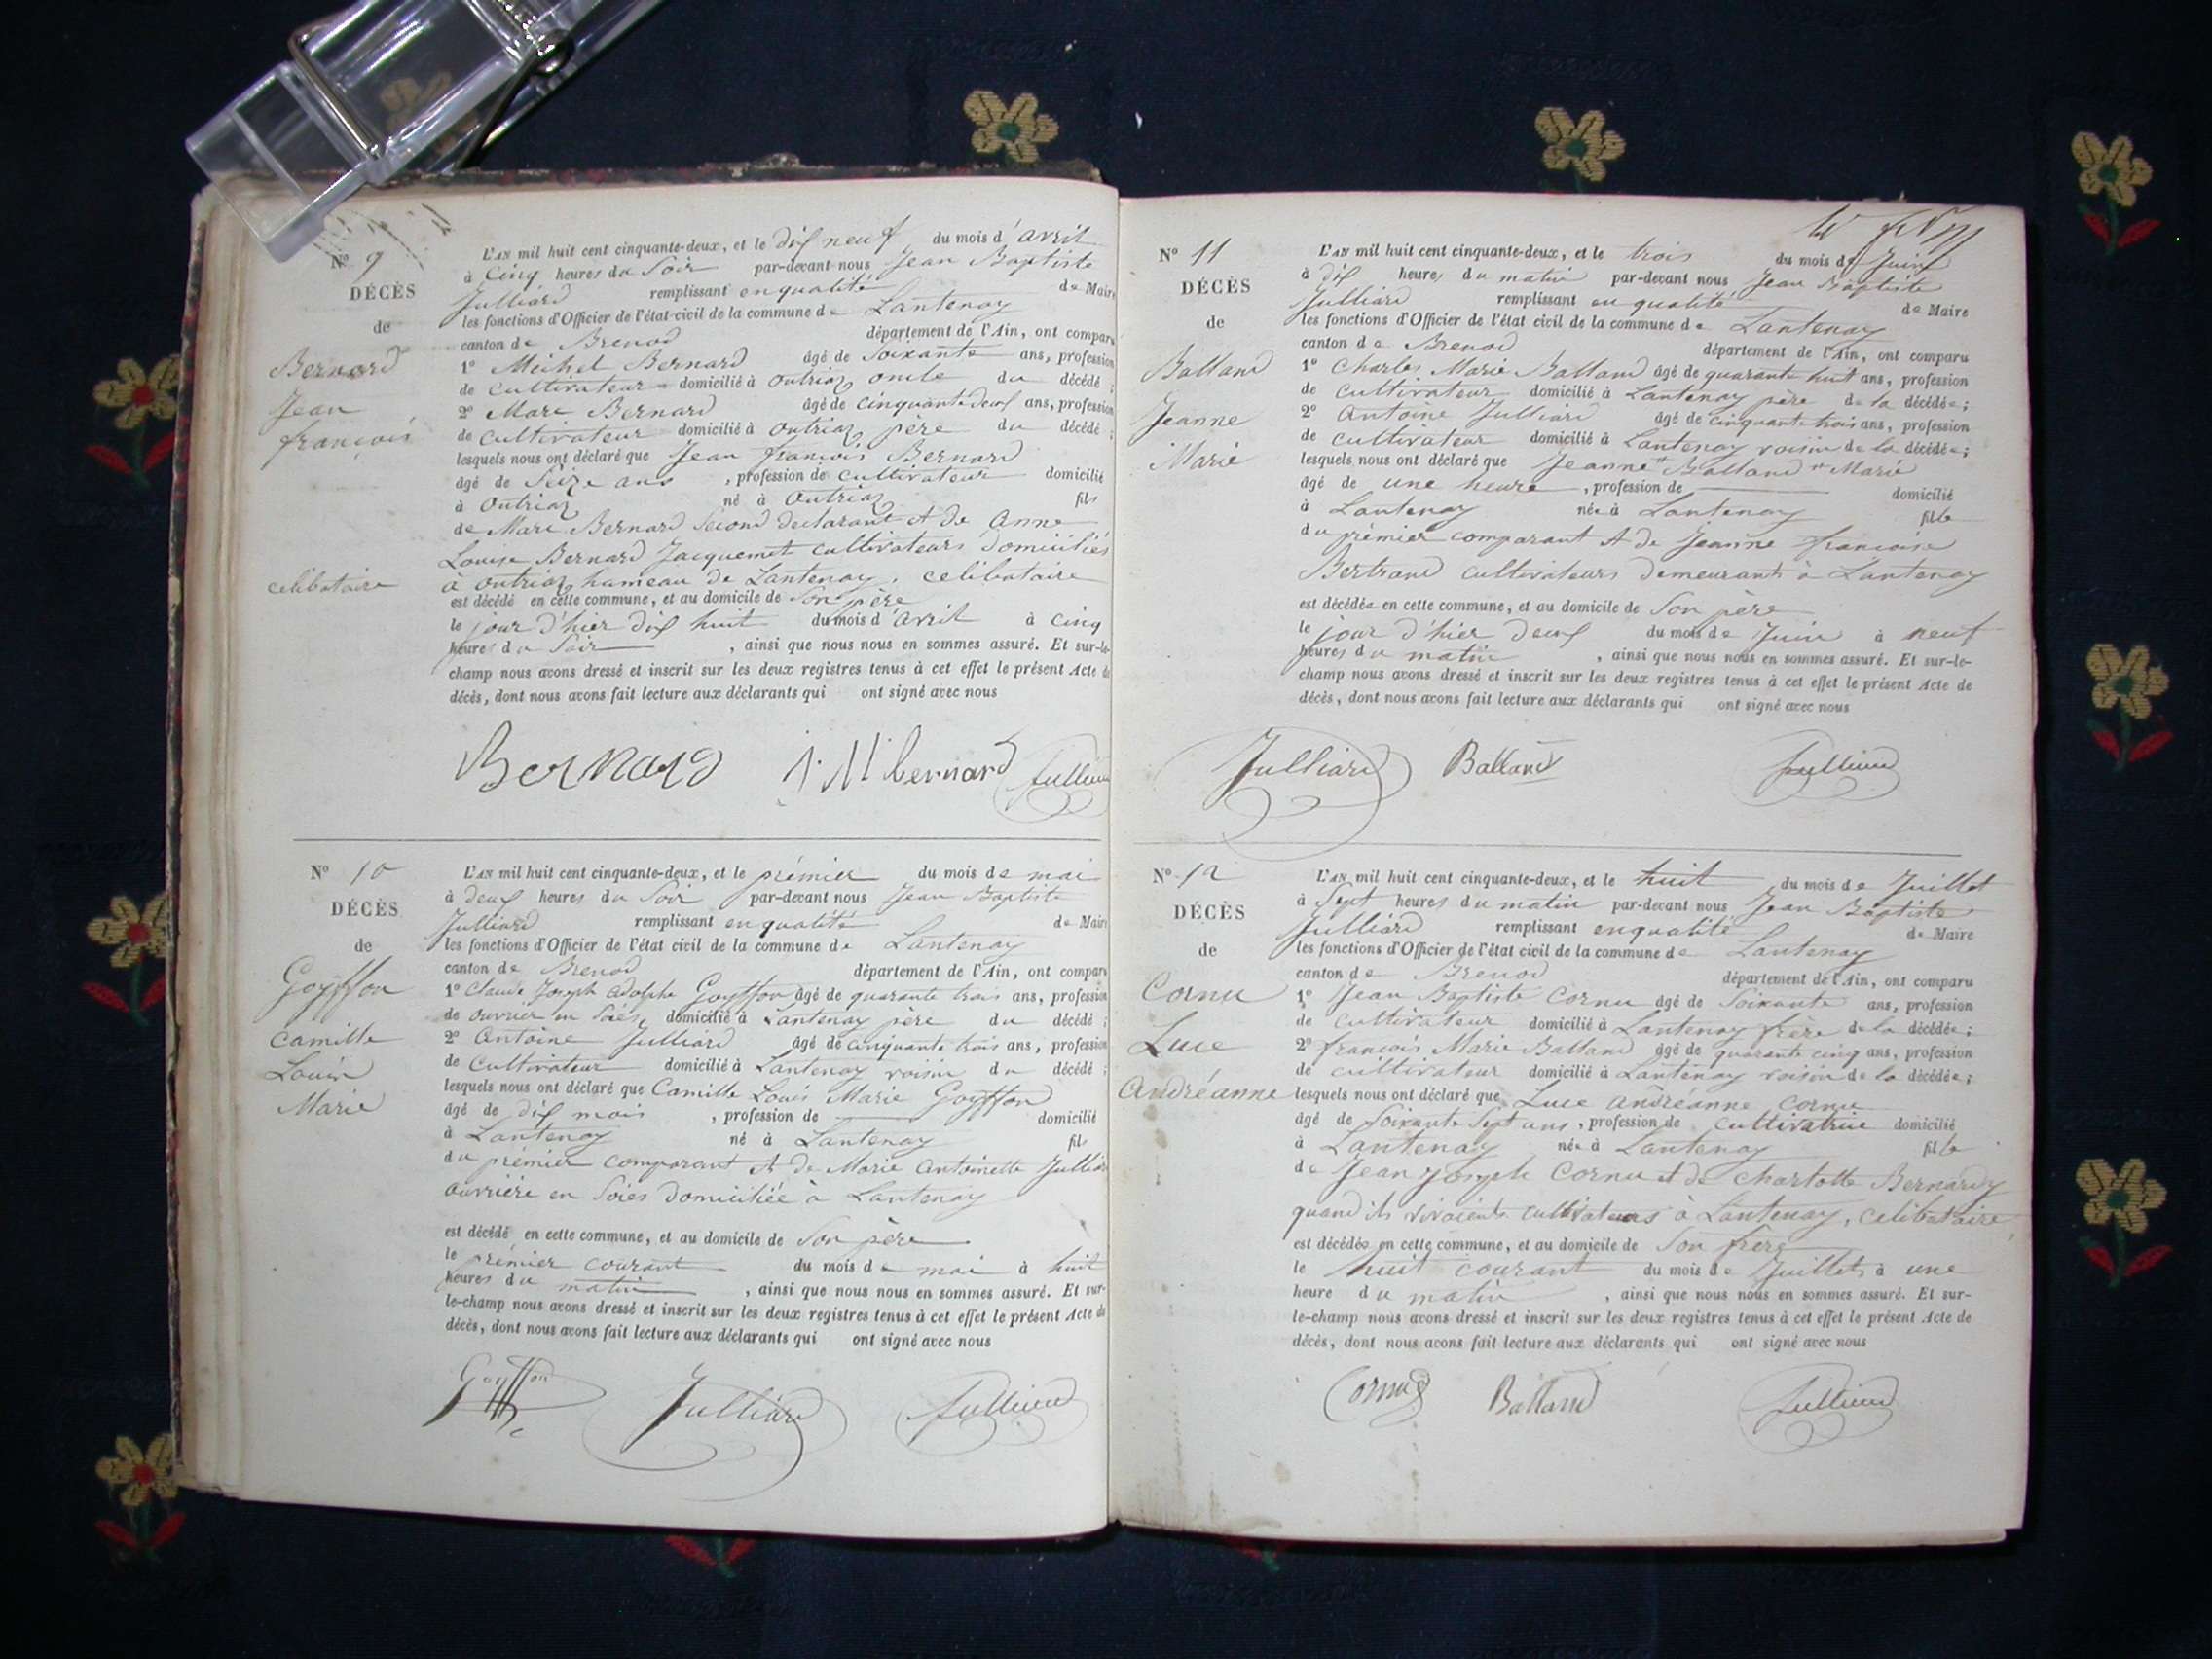 Nº 9
DÉCÈS
de
Bernard
Jean
françois
celibataire
L'AN mil huit cent cinquante-deux, et le dix neuf du mois d'avril
à Cinq heures du Soir par-devant nous Jean Baptiste
Julliard remplissant en qualité de Maire
les fonctions d'Officier de l'état-civil de la commune de Lantenay
canton de Brenod département de l'Ain, ont comparu
1º Michel Bernard âgé de Soixante ans, profession
de cultivateur domicilié à Outriaz oncle du décédé ;
2º Marc Bernard âgé de cinquante deux ans, profession
de cultivateur domicilié à Outriaz père du décédé ;
lesquels nous ont déclaré que Jean françois Bernard
âgé de Seize ans , profession de cultivateur domicilié
à Outriaz né à Outriaz fils
de Marc Bernard Second declarant et de Anne
Louise Bernard Jacquemet cultivateurs domiciliés
à Outriaz hameau de Lantenay, celibataire
est décédé en cette commune, et au domicile de Son père
le jour d'hier dix huit du mois d'avril à cinq
heures du Soir , ainsi que nous nous en sommes assuré. Et sur-le-
champ nous avons dressé et inscrit sur les deux registres tenus à cet effet le présent Acte de
décès, dont nous avons fait lecture aux déclarants qui ont signé avec nous
Bernard bernard Julliard
Nº 10
DÉCÈS
de
Goyffon
Camille
Louis
Marie
L'AN mil huit cent cinquante-deux, et le prémier du mois de mai
à deux heures du Soir par-devant nous Jean Baptiste
Julliard remplissant en qualité de Maire
les fonctions d'Officier de l'état civil de la commune de Lantenay
canton de Brenod département de l'Ain, ont comparu
1º Claude Joseph Adolphe Goyffon âgé de quarante trois ans, profession
de ouvrier en Soies, domicilié à Lantenay père du décédé ;
2º Antoine Julliard âgé de cinquante trois ans, profession
de Cultivateur domicilié à Lantenay voisin du décédé ;
lesquels nous ont déclaré que Camille Louis Marie Goyffon
âgé de dix mois , profession de domicilié
à Lantenay né à Lantenay fils
du prémier comparant et de Marie Antoinette Julliard
ouvrière en Soies domiciliée à Lantenay
est décédé en cette commune, et au domicile de Son père
le prémier courant du mois de mai à huit
heures du matin , ainsi que nous nous en sommes assuré. Et sur-
le-champ nous avons dressé et inscrit sur les deux registres tenus à cet effet le présent Acte de
décès, dont nous avons fait lecture aux déclarants qui ont signé avec nous
Goyffon Julliard Julliard
Nº 11
DÉCÈS
de
Balland
Jeanne
Marie
L'AN mil huit cent cinquante-deux, et le trois du mois de Juin
à dix heures du matin par-devant nous Jean Baptiste
Julliard remplissant en qualité de Maire
les fonctions d'Officier de l'état civil de la commune de Lantenay
canton de Brenod département de l'Ain, ont comparu
1º Charles Marie Balland âgé de quarante huit ans, profession
de cultivateur domicilié à Lantenay père de la décédée ;
2º Antoine Julliard âgé de cinquante trois ans, profession
de cultivateur domicilié à Lantenay voisin de la décédée ;
lesquels nous ont déclaré que Jeanne " Balland " Marie
âgé de une heure , profession de domicilié
à Lantenay née à Lantenay fille
du prémier comparant et de Jeanne françoise
Bertrand cultivateurs demeurants à Lantenay
est décédée en cette commune, et au domicile de Son père
le jour d'hier deux du mois de Juin à neuf
heures du matin , ainsi que nous nous en sommes assuré. Et sur-le-
champ nous avons dressé et inscrit sur les deux registres tenus à cet effet le présent Acte de
décès, dont nous avons fait lecture aux déclarants qui ont signé avec nous
Julliard Balland Julliard
Nº 12
DÉCÈS
de
Cornu
Luce
Andréanne
L'AN mil huit cent cinquante-deux, et le huit du mois de Juillet
à Sept heures du matin par-devant nous Jean Baptiste
Julliard remplissant en qualité de Maire
les fonctions d'Officier de l'état civil de la commune de Lantenay
canton de Brenod département de l'Ain, ont comparu
1º Jean Baptiste Cornu âgé de Soixante ans, profession
de cultivateur domicilié à Lantenay frère de la décédée ;
2º françois Marie Balland âgé de quarante cinq ans, profession
de cultivateur domicilié à Lantenay voisin de la décédée ;
lesquels nous ont déclaré que Luce Andréanne Cornu
âgé de Soixante Sept ans, profession de cultivatrice domicilié
à Lantenay née à Lantenay fille
de Jean Joseph Cornu et de Charlotte Bernardy
quand ils vivaient cultivateurs à Lantenay, celibataire,
est décédée en cette commune, et au domicile de Son frère
le huit courant du mois de Juillet à une
heure du matin , ainsi que nous nous en sommes assuré. Et sur-
le-champ nous avons dressé et inscrit sur les deux registres tenus à cet effet le présent Acte de
décès, dont nous avons fait lecture aux déclarants qui ont signé avec nous
Cornu Balland Julliard